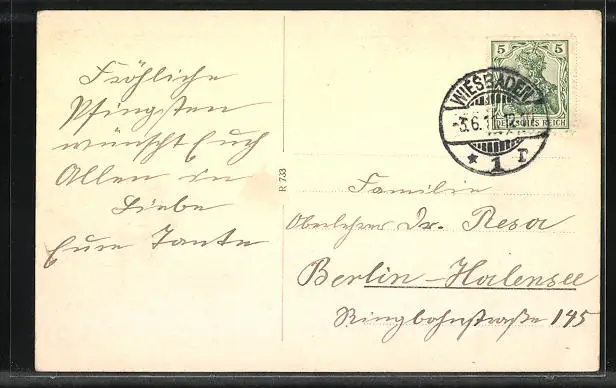 Fröhliche
Pfingsten
wünscht Euch
Allen in
Liebe
Eure Tante
R 733
5 5
DEUTSCHES REICH
WIESBADEN
* 1 r
Familie
Oberlehrer Dr. Resa
Berlin-Halensee
Ringbahnstraße 145